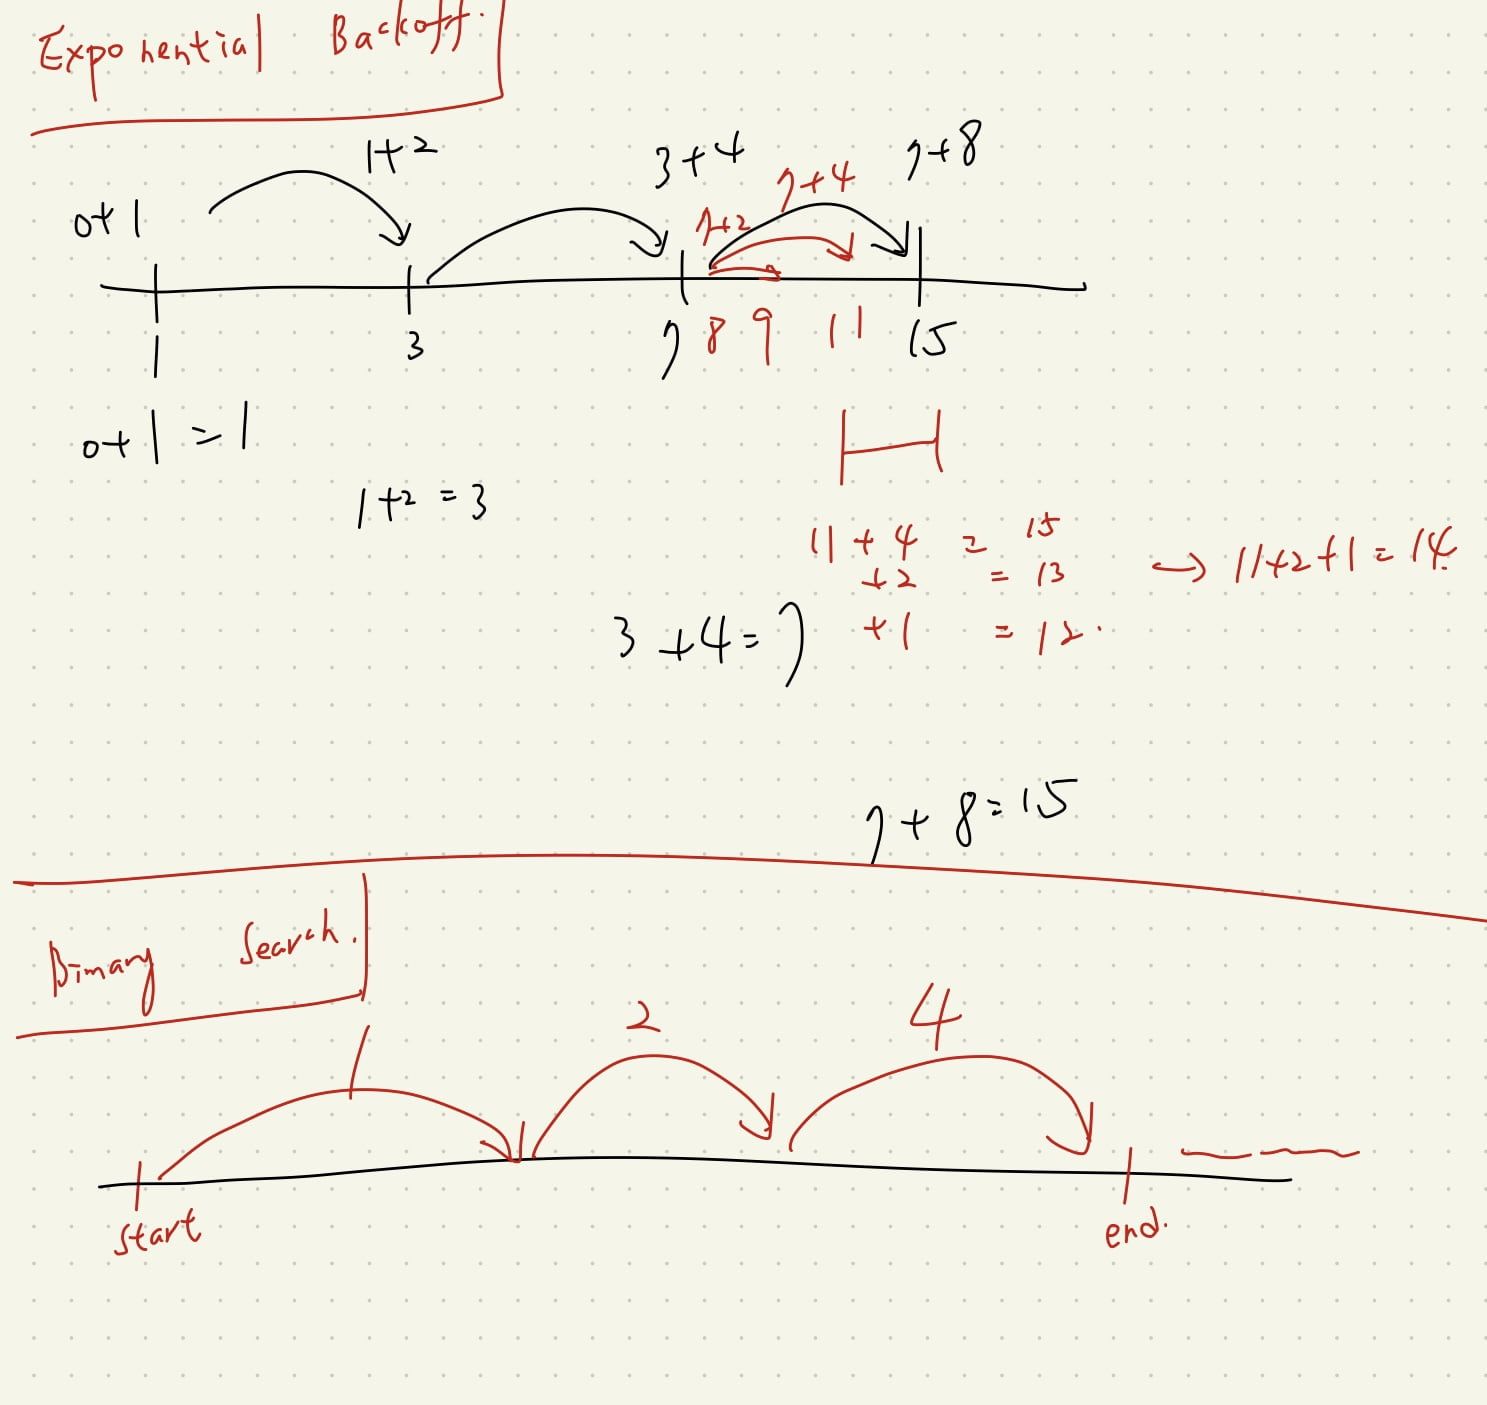 Exponential Backoff.
0+1 1+2 3+4 7+2 7+4 7+8
1 3 7 8 9 11 15
0+1=1
1+2=3
11+4=15
+2=13 → 11+2+1=14.
3+4=7 +1=12.
7+8=15
Binary Search.
1 2 4
start end.